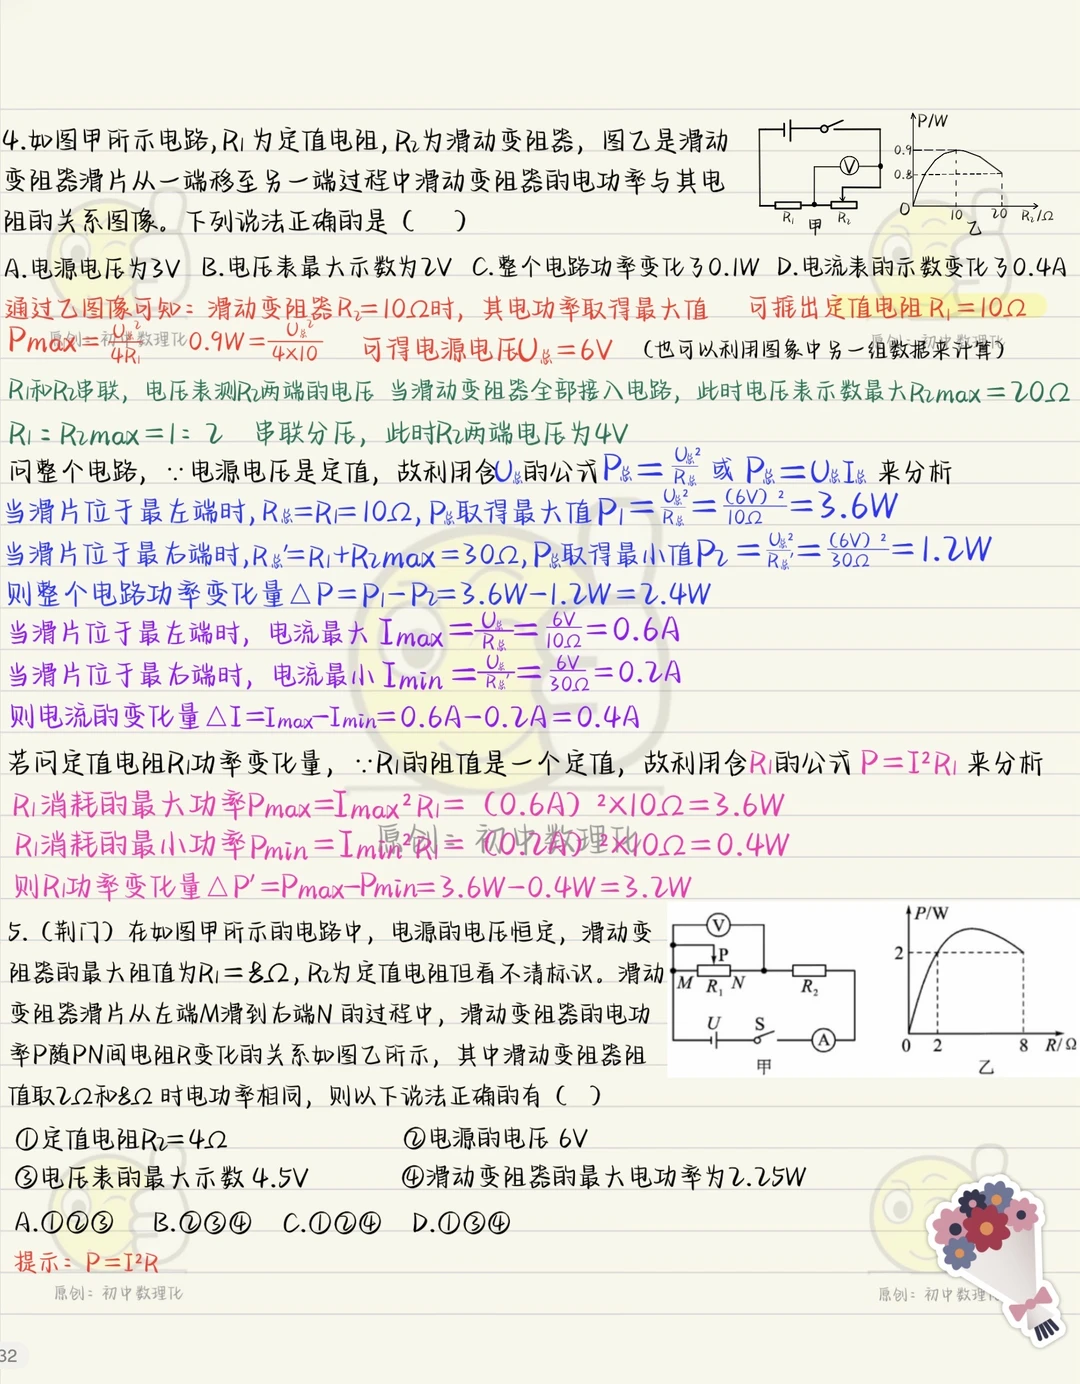 4.如图甲所示电路,R₁为定值电阻,R₂为滑动变阻器，图乙是滑动
变阻器滑片从一端移至另一端过程中滑动变阻器的电功率与其电
阻的关系图像。下列说法正确的是（ ）
V
R₁ 甲 R₂
P/W
0.9
0.8
O 10 20 R₂/Ω
乙
A.电源电压为3V B.电压表最大示数为2V C.整个电路功率变化了0.1W D.电流表的示数变化了0.4A
通过乙图像可知：滑动变阻器R₂=10Ω时，其电功率取得最大值 可推出定值电阻R₁=10Ω
Pmax=U总²/4R₁ 0.9W=U总²/4×10 可得电源电压U总=6V （也可以利用图象中另一组数据来计算）
原创：初中数理化 原创：初中数理化
R₁和R₂串联，电压表测R₂两端的电压 当滑动变阻器全部接入电路，此时电压表示数最大R₂max=20Ω
R₁：R₂max=1：2 串联分压，此时R₂两端电压为4V
问整个电路，∵电源电压是定值，故利用含U总的公式P总=U总²/R总 或 P总=U总I总 来分析
当滑片位于最左端时,R总=R₁=10Ω,P总取得最大值P₁=U总²/R总=(6V)²/10Ω=3.6W
当滑片位于最右端时,R总′=R₁+R₂max=30Ω,P总取得最小值P₂=U总²/R总′=(6V)²/30Ω=1.2W
则整个电路功率变化量△P=P₁-P₂=3.6W-1.2W=2.4W
当滑片位于最左端时，电流最大 Imax=U总/R总=6V/10Ω=0.6A
当滑片位于最右端时，电流最小 Imin=U总/R总′=6V/30Ω=0.2A
则电流的变化量△I=Imax-Imin=0.6A-0.2A=0.4A
若问定值电阻R₁功率变化量，∵R₁的阻值是一个定值，故利用含R₁的公式 P=I²R₁ 来分析
R₁消耗的最大功率Pmax=Imax²R₁=（0.6A）²×10Ω=3.6W
R₁消耗的最小功率Pmin=Imin²R₁=（0.2A）²×10Ω=0.4W
原创：初中数理化
则R₁功率变化量△P′=Pmax-Pmin=3.6W-0.4W=3.2W
5.（荆门）在如图甲所示的电路中，电源的电压恒定，滑动变
阻器的最大阻值为R₁=8Ω,R₂为定值电阻但看不清标识。滑动
变阻器滑片从左端M滑到右端N的过程中，滑动变阻器的电功
率P随PN间电阻R变化的关系如图乙所示，其中滑动变阻器阻
值取2Ω和8Ω时电功率相同，则以下说法正确的有（ ）
V
P
M R₁ N R₂
U S A
甲
P/W
2
0 2 8 R/Ω
乙
①定值电阻R₂=4Ω ②电源的电压 6V
③电压表的最大示数 4.5V ④滑动变阻器的最大电功率为2.25W
A.①②③ B.②③④ C.①②④ D.①③④
提示：P=I²R
原创：初中数理化 原创：初中数理
32